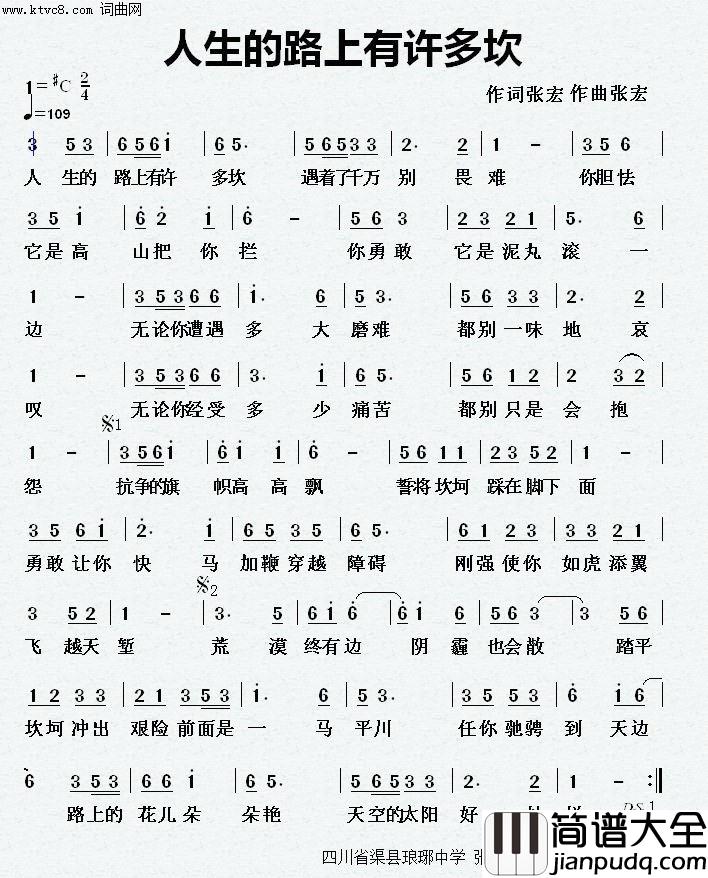 www.ktvc8.com 词曲网
人生的路上有许多坎
1=#C 2/4
♩=109
作词张宏 作曲张宏
3 53 | 6561 | 65. | 56533 | 2. 2 | 1 - | 356 |
人 生的 路上有许 多坎 遇着了千万 别 畏 难 你胆怯
351 | 62 1 | 6 - | 563 | 23 21 | 5. 6 |
它是高 山把 你 拦 你勇敢 它是泥丸 滚 一
1 - | 35366 | 1. 6 | 53. | 56 33 | 2. 2 |
边 无论你遭遇 多 大 磨难 都别一味 地 哀
1 - | 35366 | 3. 1 | 65. | 56 12 | 2 32 |
叹 无论你经受 多 少 痛苦 都别只是 会 抱
𝄋1
1 - | 3561 | 61 1 | 6 - | 56 11 | 23 52 | 1 - |
怨 抗争的旗 帜高 高 飘 誓将坎坷 踩在脚下 面
35 61 | 2. 1 | 65 35 | 65. | 61 23 | 33 21 |
勇敢让你 快 马 加鞭穿越 障碍 刚强使你 如虎添翼
𝄋2
3 52 | 1 - | 3. 5 | 61 6 | 61 6 | 56 3 | 3 56 |
飞 越天 堑 荒 漠 终有边 阴 霾 也会散 踏平
12 33 | 21 353 | 1. 6 | 53. | 35 53 | 6 16 |
坎坷冲出 艰险前面是 一 马 平川 任你驰骋 到 天边
6 353 | 661 | 65. | 35653 | 2. 2 | 1 - :||
路上的 花儿朵 朵艳 天空的太阳 好
D.S.1
四川省渠县琅琊中学
简谱大全
jianpudq.com